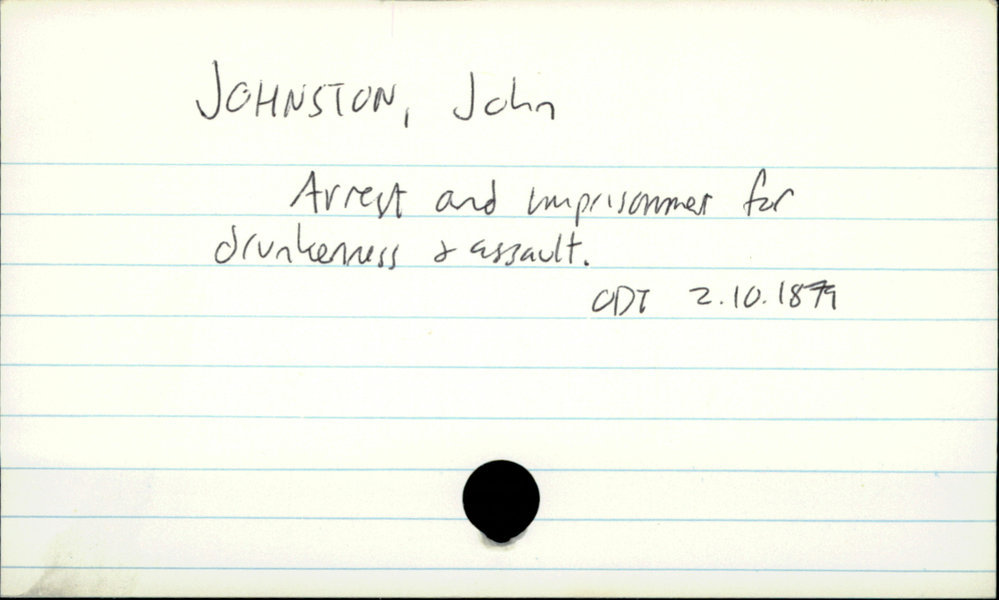 JOHNSTON, John
Arrest and imprisonmet for
drunkenness & assault.
ODT 2.10.1879